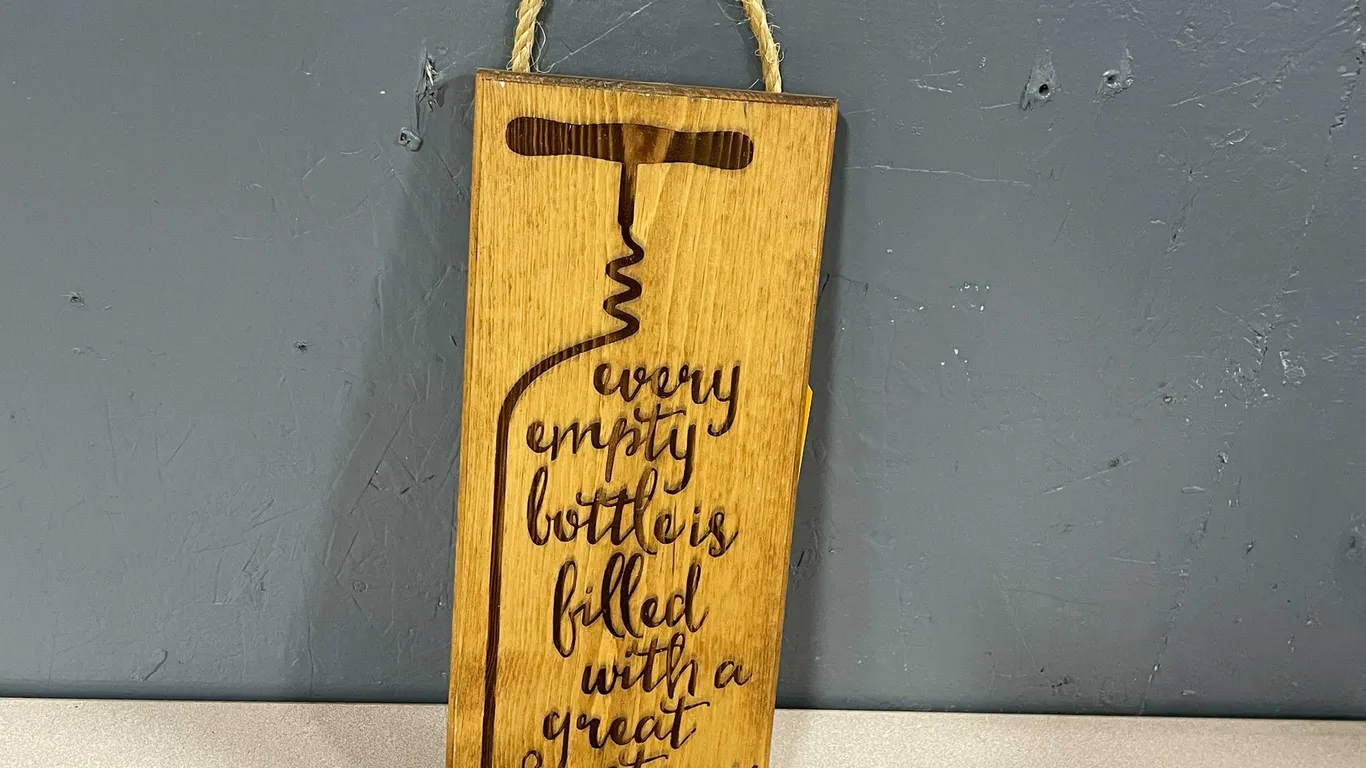 every
empty
bottle is
filled
with a
great